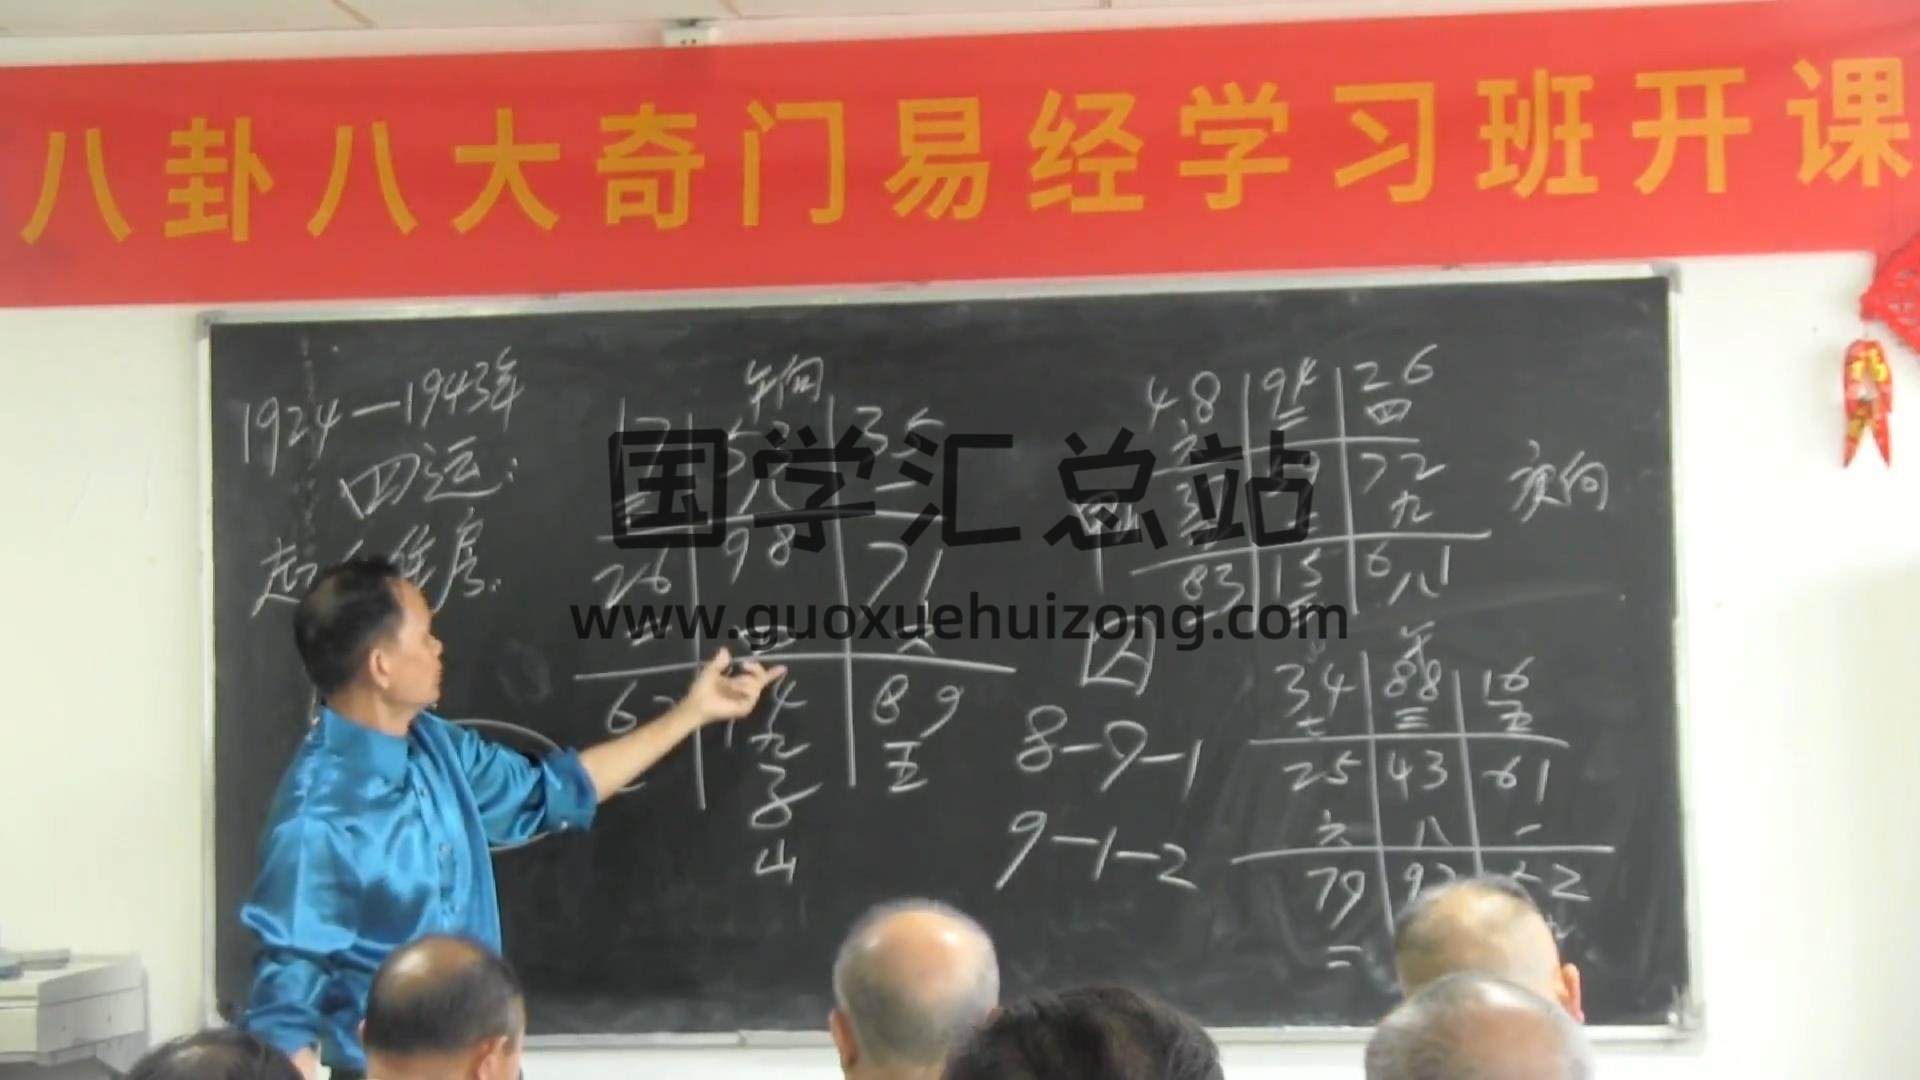 八卦八大奇门易经学习班开课
1924—1943年
四运:
起
房:
午向
17 53 35
三 八 一
26 98 71
二 四 六
6
4 89
九 五
子
山
48 94 26
六 二 四
72
九
83 15 61
八
甲
庚向
囚
8-9-1
9-1-2
午
34 88 16
七 三 五
25 43 61
六 八 一
79 97
二
国学汇总站
www.guoxuehuizong.com